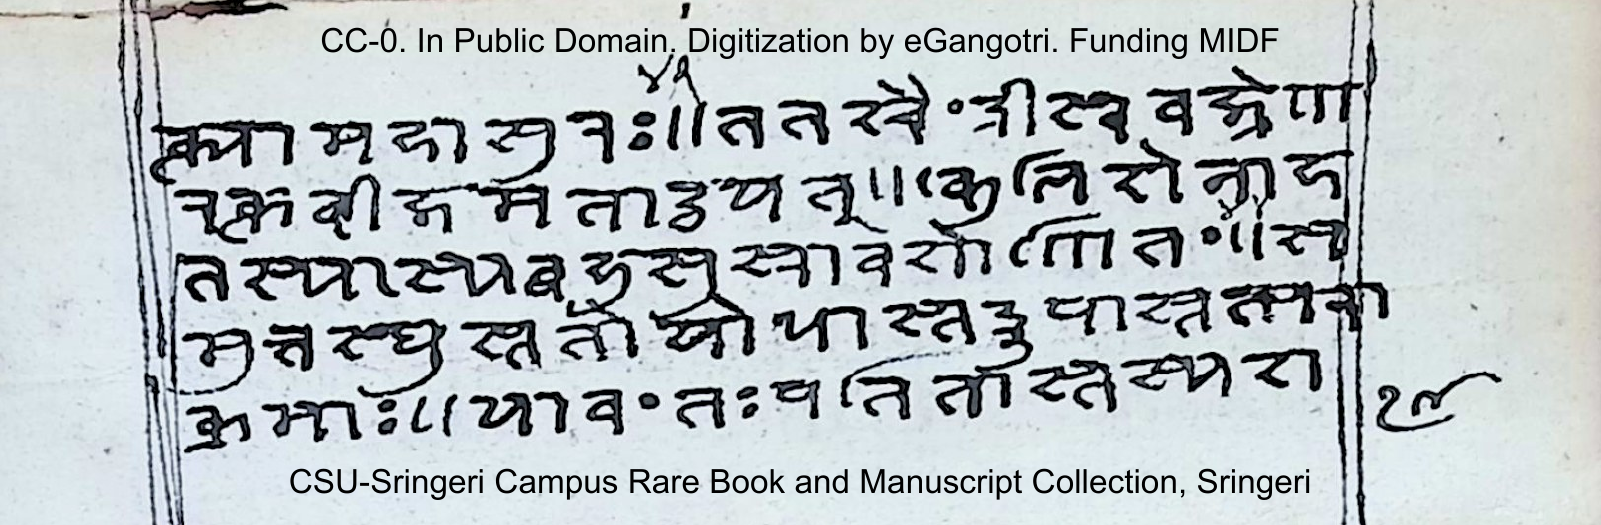 CC-0. In Public Domain. Digitization by eGangotri. Funding MIDF
महासुरः॥ततस्त्रै॰त्रीस्व वक्त्रेणा
मताडयत्॥कुलिशेनाह
तस्यास्यबहुसुस्रावशोणित॰॥स
मुत्तस्थुस्ततो योधास्तद्रुपास्तत्परा
क्रमाः॥याव॰तःपतितास्तस्यरा
CSU-Sringeri Campus Rare Book and Manuscript Collection, Sringeri